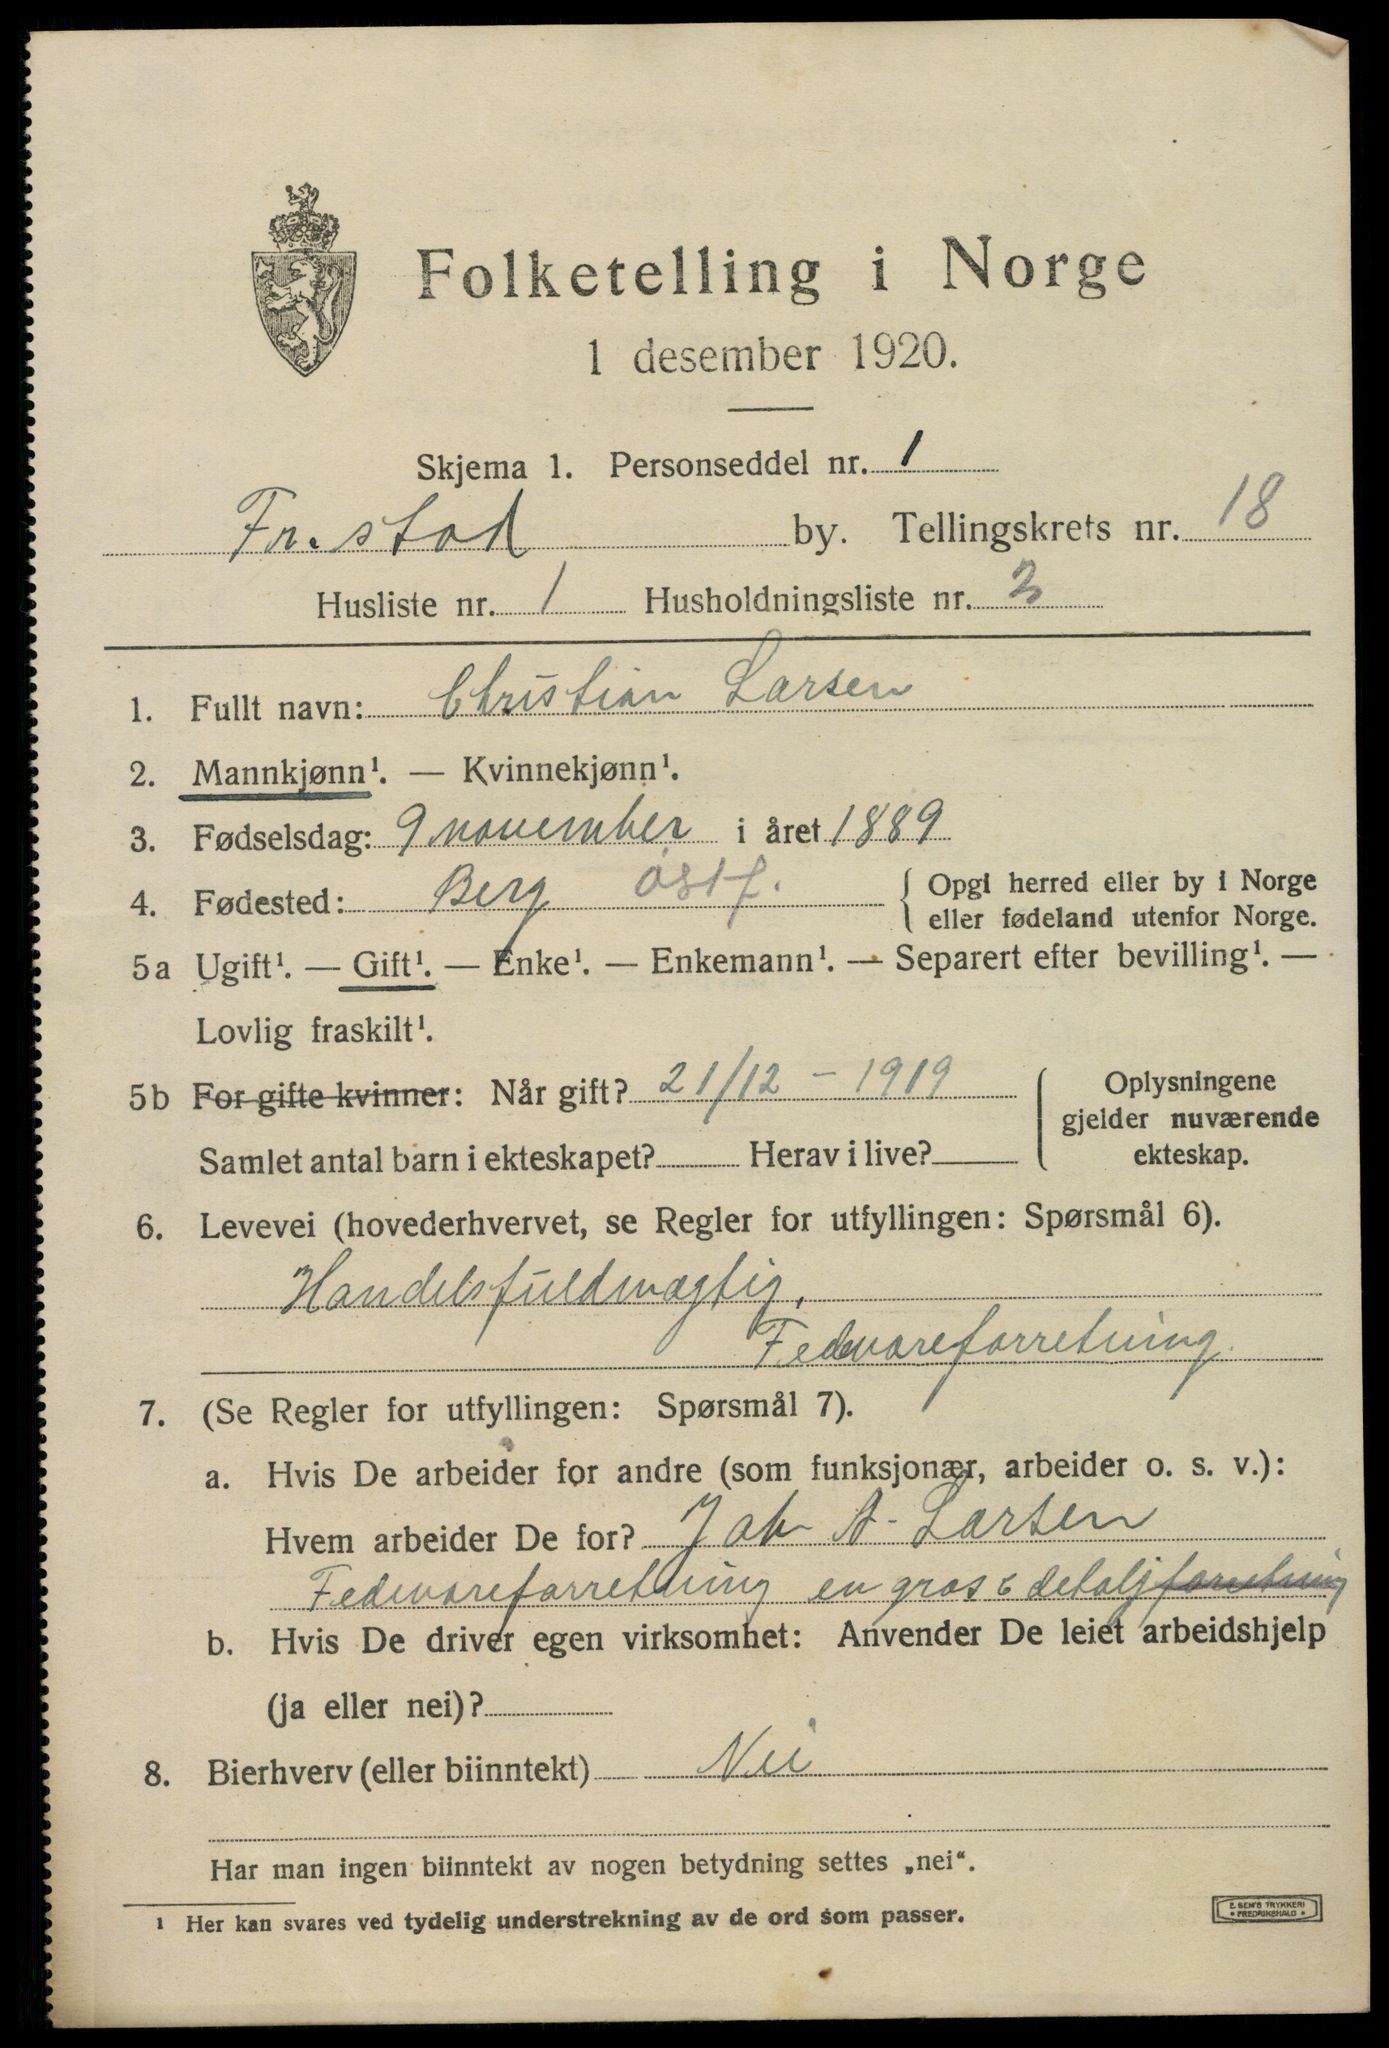 Folketelling i Norge
1 desember 1920.
Skjema 1. Personseddel nr. 1
Fr.stad by. Tellingskrets nr. 18
Husliste nr. 1 Husholdningsliste nr. 2
1. Fullt navn: Christian Larsen
2. Mannkjønn¹. — Kvinnekjønn¹.
3. Fødselsdag: 9 november i året 1889
4. Fødested: Berg Østf. { Opgi herred eller by i Norge
eller fødeland utenfor Norge.
5a Ugift¹. — Gift¹. — Enke¹. — Enkemann¹. — Separert efter bevilling¹. —
Lovlig fraskilt¹.
5b For gifte kvinner: Når gift? 21/12 – 1919
Samlet antal barn i ekteskapet? Herav i live?
Oplysningene
gjelder nuværende
ekteskap.
6. Levevei (hovederhvervet, se Regler for utfyllingen: Spørsmål 6).
Handelsfuldmægtig,
Fedevareforretning.
7. (Se Regler for utfyllingen: Spørsmål 7).
a. Hvis De arbeider for andre (som funksjonær, arbeider o. s. v.):
Hvem arbeider De for? Jab A. Larsen
Fedevareforretning en gros & detalj forretning
b. Hvis De driver egen virksomhet: Anvender De leiet arbeidshjelp
(ja eller nei)?
8. Bierhverv (eller biinntekt) Nei
Har man ingen biinntekt av nogen betydning settes „nei“.
¹ Her kan svares ved tydelig understrekning av de ord som passer.
E. SEM'S TRYKKERI
• FREDRIKSHALD •